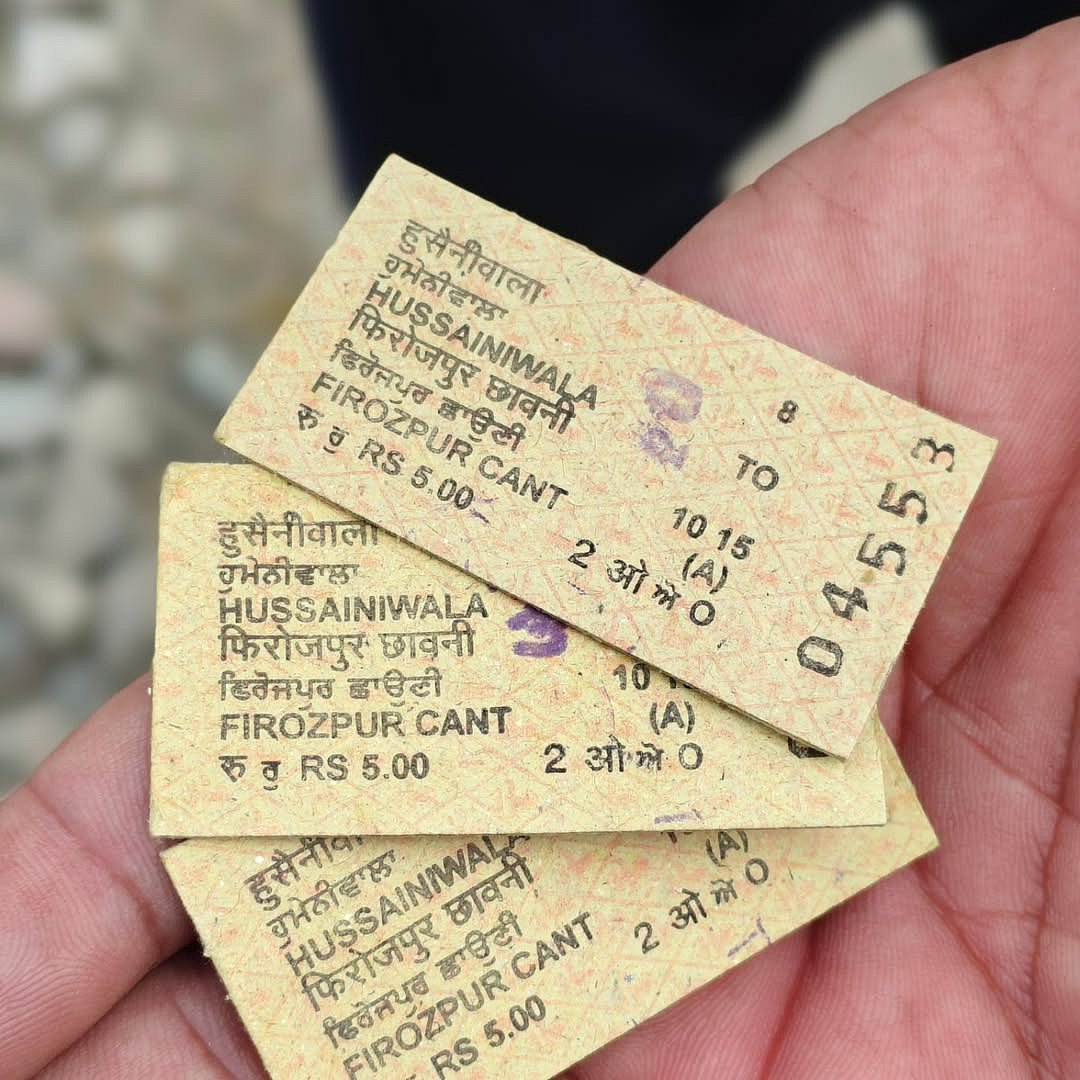 हुसैनीवाला
ਹੁਸੈਨੀਵਾਲਾ
HUSSAINIWALA
फिरोजपुर छावनी
ਫਿਰੋਜਪੁਰ ਛਾਉਣੀ
FIROZPUR CANT
रु ਰੁ RS 5.00
8
TO
10 15
(A)
2 ओ ਐ O
04553
हुसैनीवाला
ਹੁਸੈਨੀਵਾਲਾ
HUSSAINIWALA
फिरोजपुर छावनी
ਫਿਰੋਜਪੁਰ ਛਾਉਣੀ
FIROZPUR CANT
रु ਰੁ RS 5.00
10
(A)
2 ओ ਐ O
ਹੁਸੈਨੀਵਾਲਾ
HUSSAINIWALA
फिरोजपुर छावनी
ਫਿਰੋਜਪੁਰ ਛਾਉਣੀ
FIROZPUR CANT
RS 5.00
(A)
2 ओ ਐ O